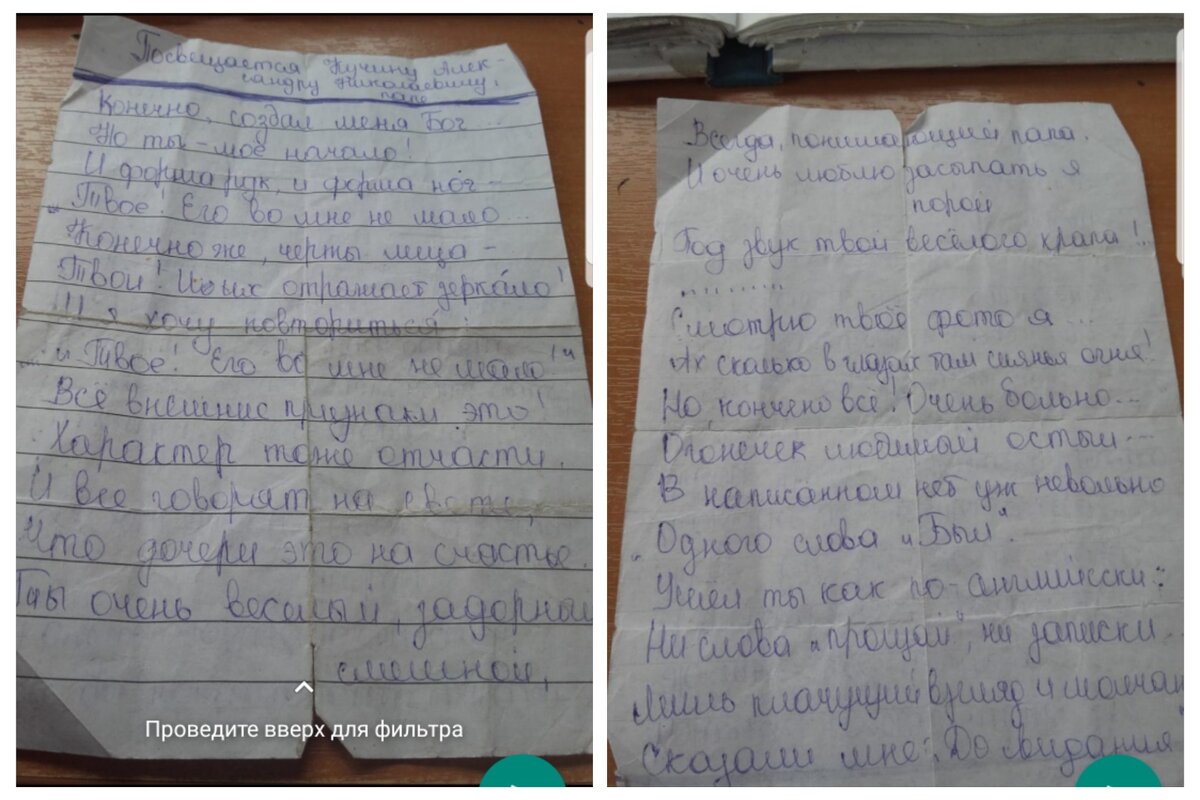 Посвещается Кучину Алек-
сандру Николаевичу,
папе
Конечно, создал меня Бог...
Но ты – моё начало!
И форма рук, и форма ног –
„Твоё! Его во мне не мало...
Конечно же, черты лица –
Твои! Их отражает зеркало!
И я хочу повториться:
„Твоё! Его во мне не мало!"
Всё внешние признаки это!
Характер тоже отчасти.
И все говорят на свете,
Что дочери это на счастье.
Ты очень веселый, задорный
смешной,
Проведите вверх для фильтра
Всегда, понимающий папа.
И очень люблю засыпать я
порой
Под звук твой весёлого храпа!..
..........
Смотрю твоё фото я...
Ах сколько в глазах там сиянья огня!
Но, кончено всё! Очень больно...
Огонечек любимый остыл...
В написанном нет уж невольно
Одного слова „Был".
Ушёл ты как по-английски:
Ни слова „прощай", ни записки...
Лишь плачущий взгляд и молчан
Сказали мне: До свидания